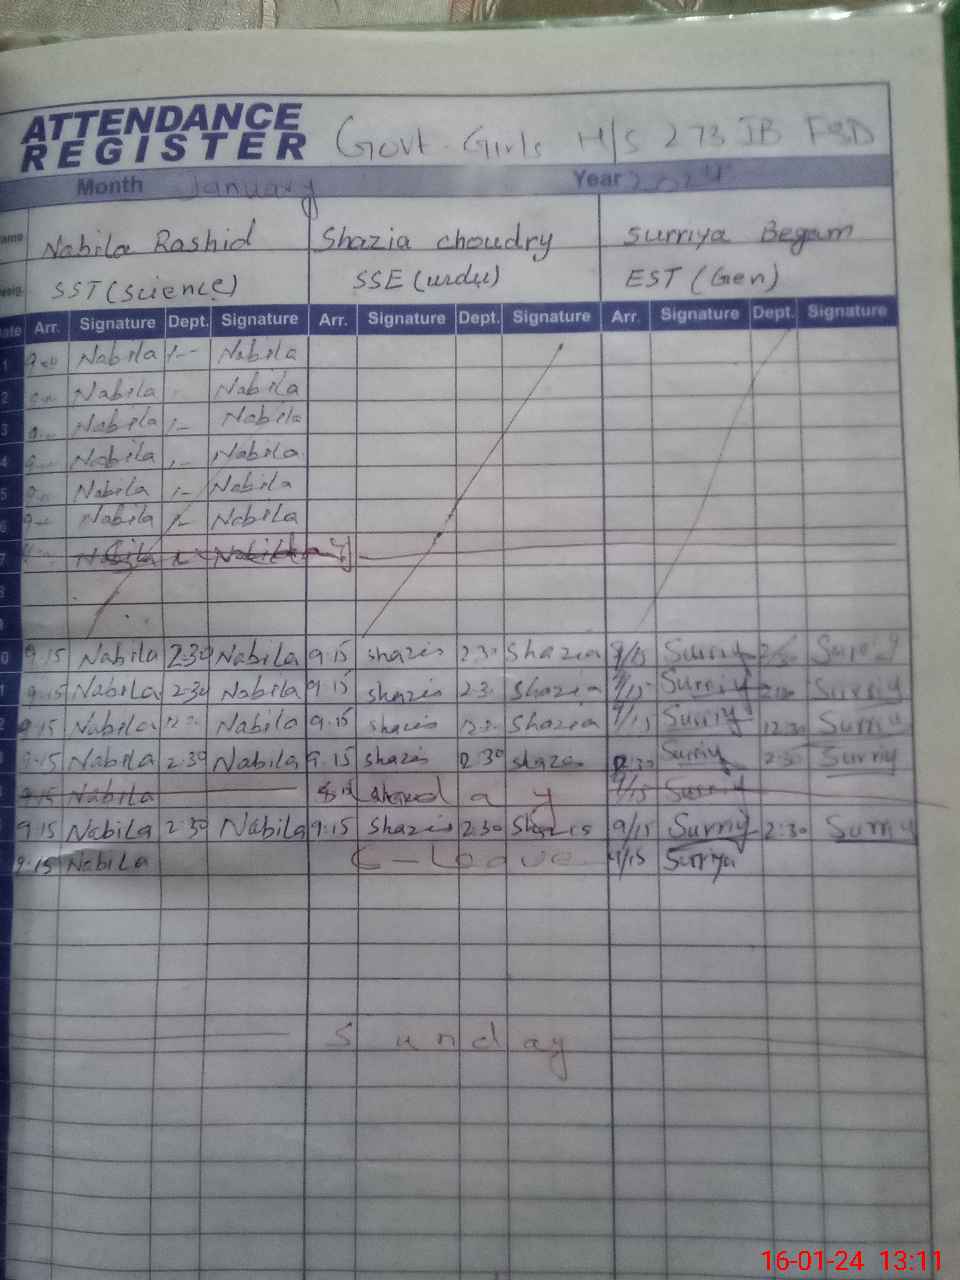 ATTENDANCE
REGISTER Govt. Girls H/S 273 JB FSD
Month January Year 2024
Nabila Rashid Shazia choudry Surriya Begam
SST (Science) SSE (urdu) EST (Gen)
Arr. Signature Dept. Signature Arr. Signature Dept. Signature Arr. Signature Dept. Signature
1 Nabila Nabila
2 Nabila Nabila
3 Nabila Nabila
4 Nabila Nabila
5 Nabila Nabila
6 Nabila Nabila
7 Nabila Nabila
9.15 Nabila 2.30 Nabila 9.15 shazia 2.30 Shazia 9/15 Surriy
9.15 Nabila 2.30 Nabila 9.15 shazia 2.3 Shazia Surriy
9.15 Nabila Nabila 9.15 shazia Shazia Surriy 12.30 Surriy
9.15 Nabila 2.30 Nabila 9.15 shazia 2.30 shazia Surriy 2.30 Surriy
9.15 Nabila 9/15 Surriy
9.15 Nabila 2.30 Nabila 9.15 Shazia 2.30 Shazia 9/15 Surriy 2:30 Surriy
9.15 Nabila C-Leave 9/15 Surriya
Sunday
16-01-24 13:11